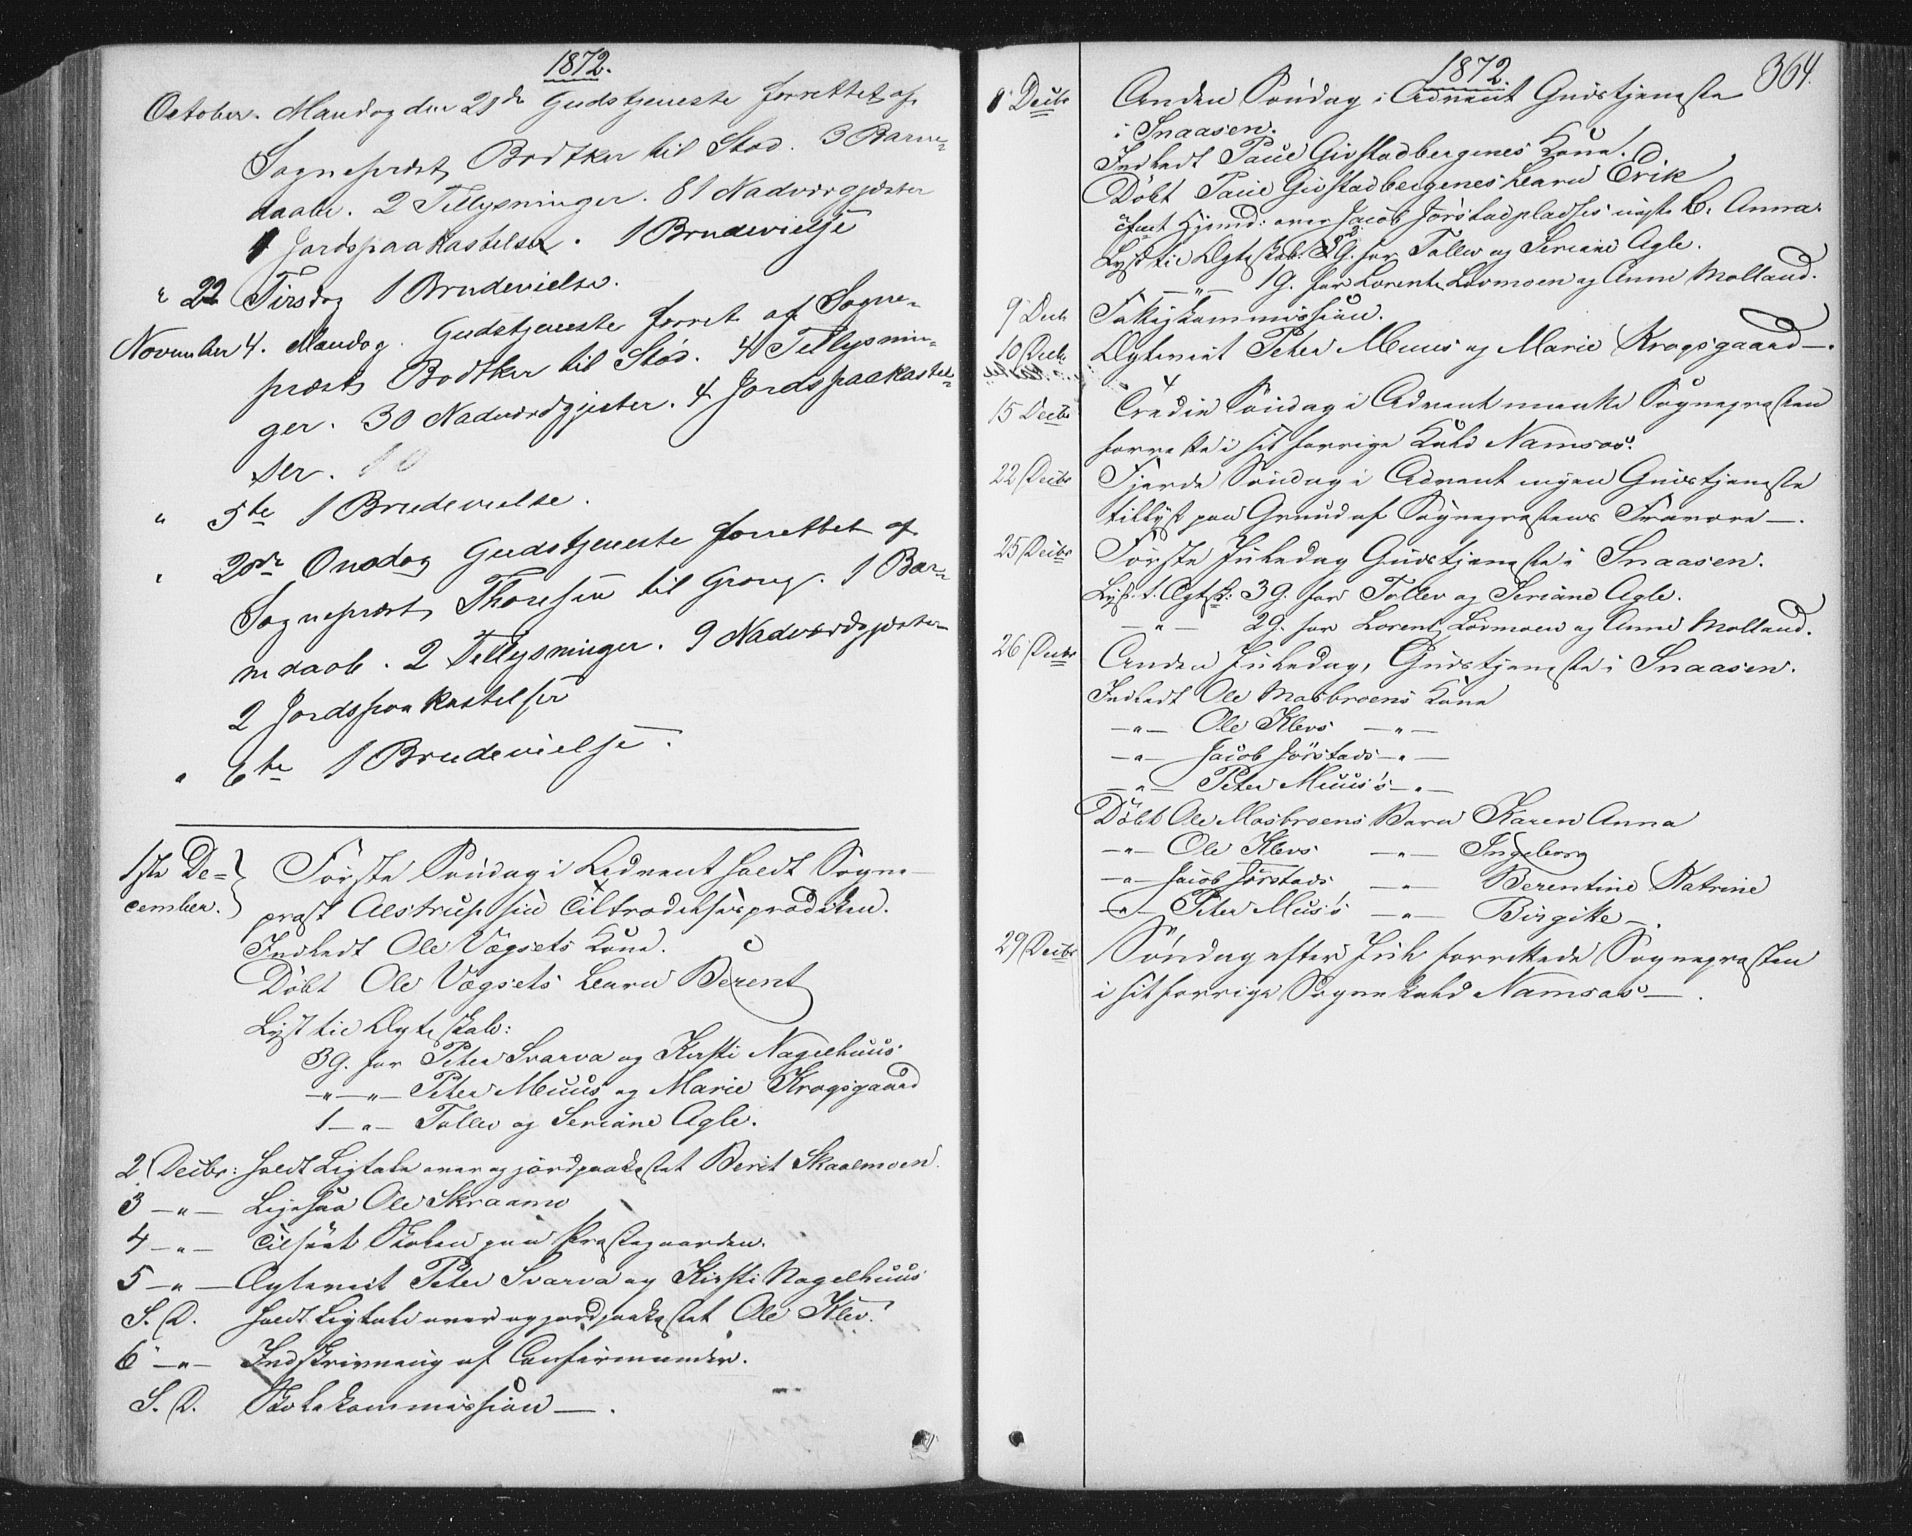 1872.
October. Mandag den 21de Gudstjeneste forrettet af
Sognepræst Bødtker til Stod. 3 Barne-
daab. 2 Tillysninger. 81 Nadvergjester
1 Jordspaakastelse. 1 Brudevielse
" 22 Tirsdag 1 Brudevielse.
November 4. Mandag. Gudstjeneste forret. af Sogne-
præst Bødtker til Stod. 4 Tillysnin-
ger. 30 Nadverdgjester. 4 Jordspaakastel-
ser.
" 5te 1 Brudevielse.
" 20de Onsdag Gudstjeneste forrettet af
Sognepræst Thoresen til Grong. 1 Bar-
nedaab. 2 Tillysninger. 9 Nadverdsgjester
2 Jordspaakastelser
" 6te 1 Brudevielse.
1ste De-
cember.
Første Søndag i Advent holdt Sogne-
præst Alstrup sin Tiltrædelsesprædiken.
Indledt Ole Vægsets Kone.
Døbt Ole Vægsets Barn Berent
Lyst til Ægteskab:
3 G. for Peter Svarva og Kirsti Nagelhuus
—"—"— Peter Muus og Marie Krogsgaard
1—"— Tollev og Seriane Agle.
2 Decbr: holdt Ligtale over og jordpaakastet Berit Skaalmoen.
3 —"— Ligesaa Ole Skraamo
4 —"— Tilseet Skolen paa Præstegaarden.
5 —"— Ægteviet Peter Svarva og Kirsti Nagelhuus
S. D. holdt Ligtale over og jordpaakastet Ole Klev.
6 —"— Indskrivning af Confirmander.
S. D. Skolekommission—.
1872. 364.
8 Decbr Anden Søndag i Advent Gudstjeneste
i Snaasen.
Indledt Paul Givstadbergenes Kone.
Døbt Paul Givstadbergenes Barn Erik
over Jacob Jørstadpladses Anna
Lyst til Ægteskab: 2 G. for Tollev og Seriane Agle.
—"— 1 G. for Lorents Løvmoen og Anne Molland.
9 Decb Fattigkommission.
10 Decb. Ægteviet Peter Muus og Marie Krogsgaard—.
15 Decbr Tredie Søndag i Advent maatte Sognepræsten
forrette i sit forrige Kald Namsos.
22 Decbr Fjerde Søndag i Advent ingen Gudstjeneste
tillyst paa Grund af Sognepræstens Fravær—.
25 Decbr Første Juledag Gudstjeneste i Snaasen.
Lyst t. Ægtsk: 3 G. for Tollev og Seriane Agle.
—"— 2 G. for Lorents Løvmoen og Anne Molland.
26 Decbr Anden Juledag, Gudstjeneste i Snaasen.
Indledt Ole Mosbroens Kone
—"— Ole Klevs —"—
—"— Jacob Jørstads —"—
—"— Peter Muus's —"—
Døbt Ole Mosbroens Barn Karen Anna
—"— Ole Klevs —"— Ingeborg
—"— Jacob Jørstads —"— Berentine Katrine
—"— Peter Mus's —"— Birgitte—.
29 Decbr Søndag efter Jul forrettede Sognepræsten
i sit forrige Sognekald Namsos—.